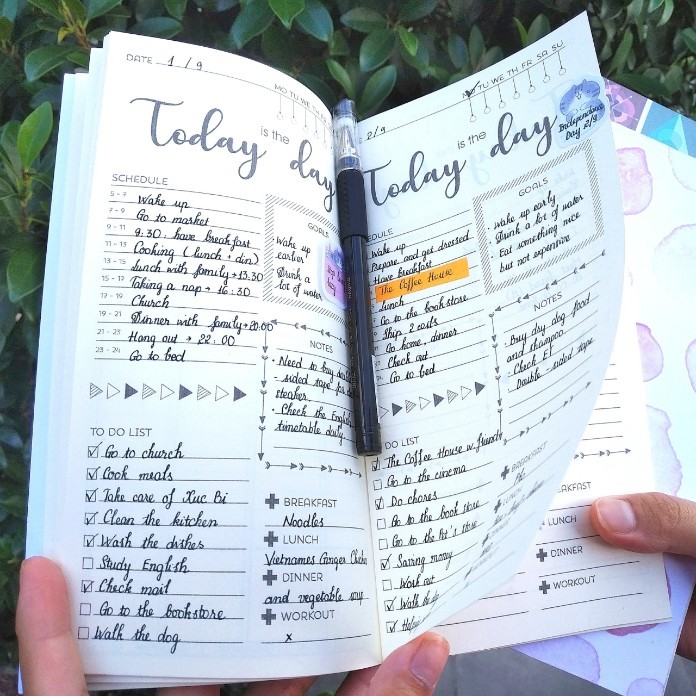 DATE 1 / 9
MO TU WE TH FR
Today is the day
SCHEDULE
5 - 7 Wake up
7 - 9 Go to market
9 - 11 9:30: have breakfast
11 - 13 Cooking (lunch + din)
13 - 15 Lunch with family → 13:30
15 - 17 Taking a nap → 16:30
17 - 19 Church
19 - 21 Dinner with family → 20:00
21 - 23 Hang out → 22:00
23 - 24 Go to bed
GOALS
• Wake up
earlier
• Drink a
lot of water
NOTES
• Need to buy
- sided tape for
• Check the English
timetable daily.
TO DO LIST
Go to church
Cook meals
Take care of Xuc Bi
Clean the kitchen
Wash the dishes
Study English
Check mail
Go to the bookstore
Walk the dog
BREAKFAST
Noodles
LUNCH
Vietnames Ginger Chicken
DINNER
and vegetable soup
WORKOUT
x
2/9
MO TU WE TH FR SA SU
Today is the day
Independence
Day 2/9
Wake up
Prepare and get dressed
Have breakfast
The Coffee House
Lunch
Go to the bookstore
Go home, dinner
Check out
Go to bed
GOALS
• Wake up early
• Drink a lot of water
• Eat something nice
but not expensive
NOTES
• Buy dry dog food
and shampoo
• Check
• Double - sided tape
DO LIST
The Coffee House w friends
Go to the cinema
Do chores
Go to the book store
Go to the
Saving money
Work out
Walk the
BREAKFAST
LUNCH
LUNCH
DINNER
WORKOUT